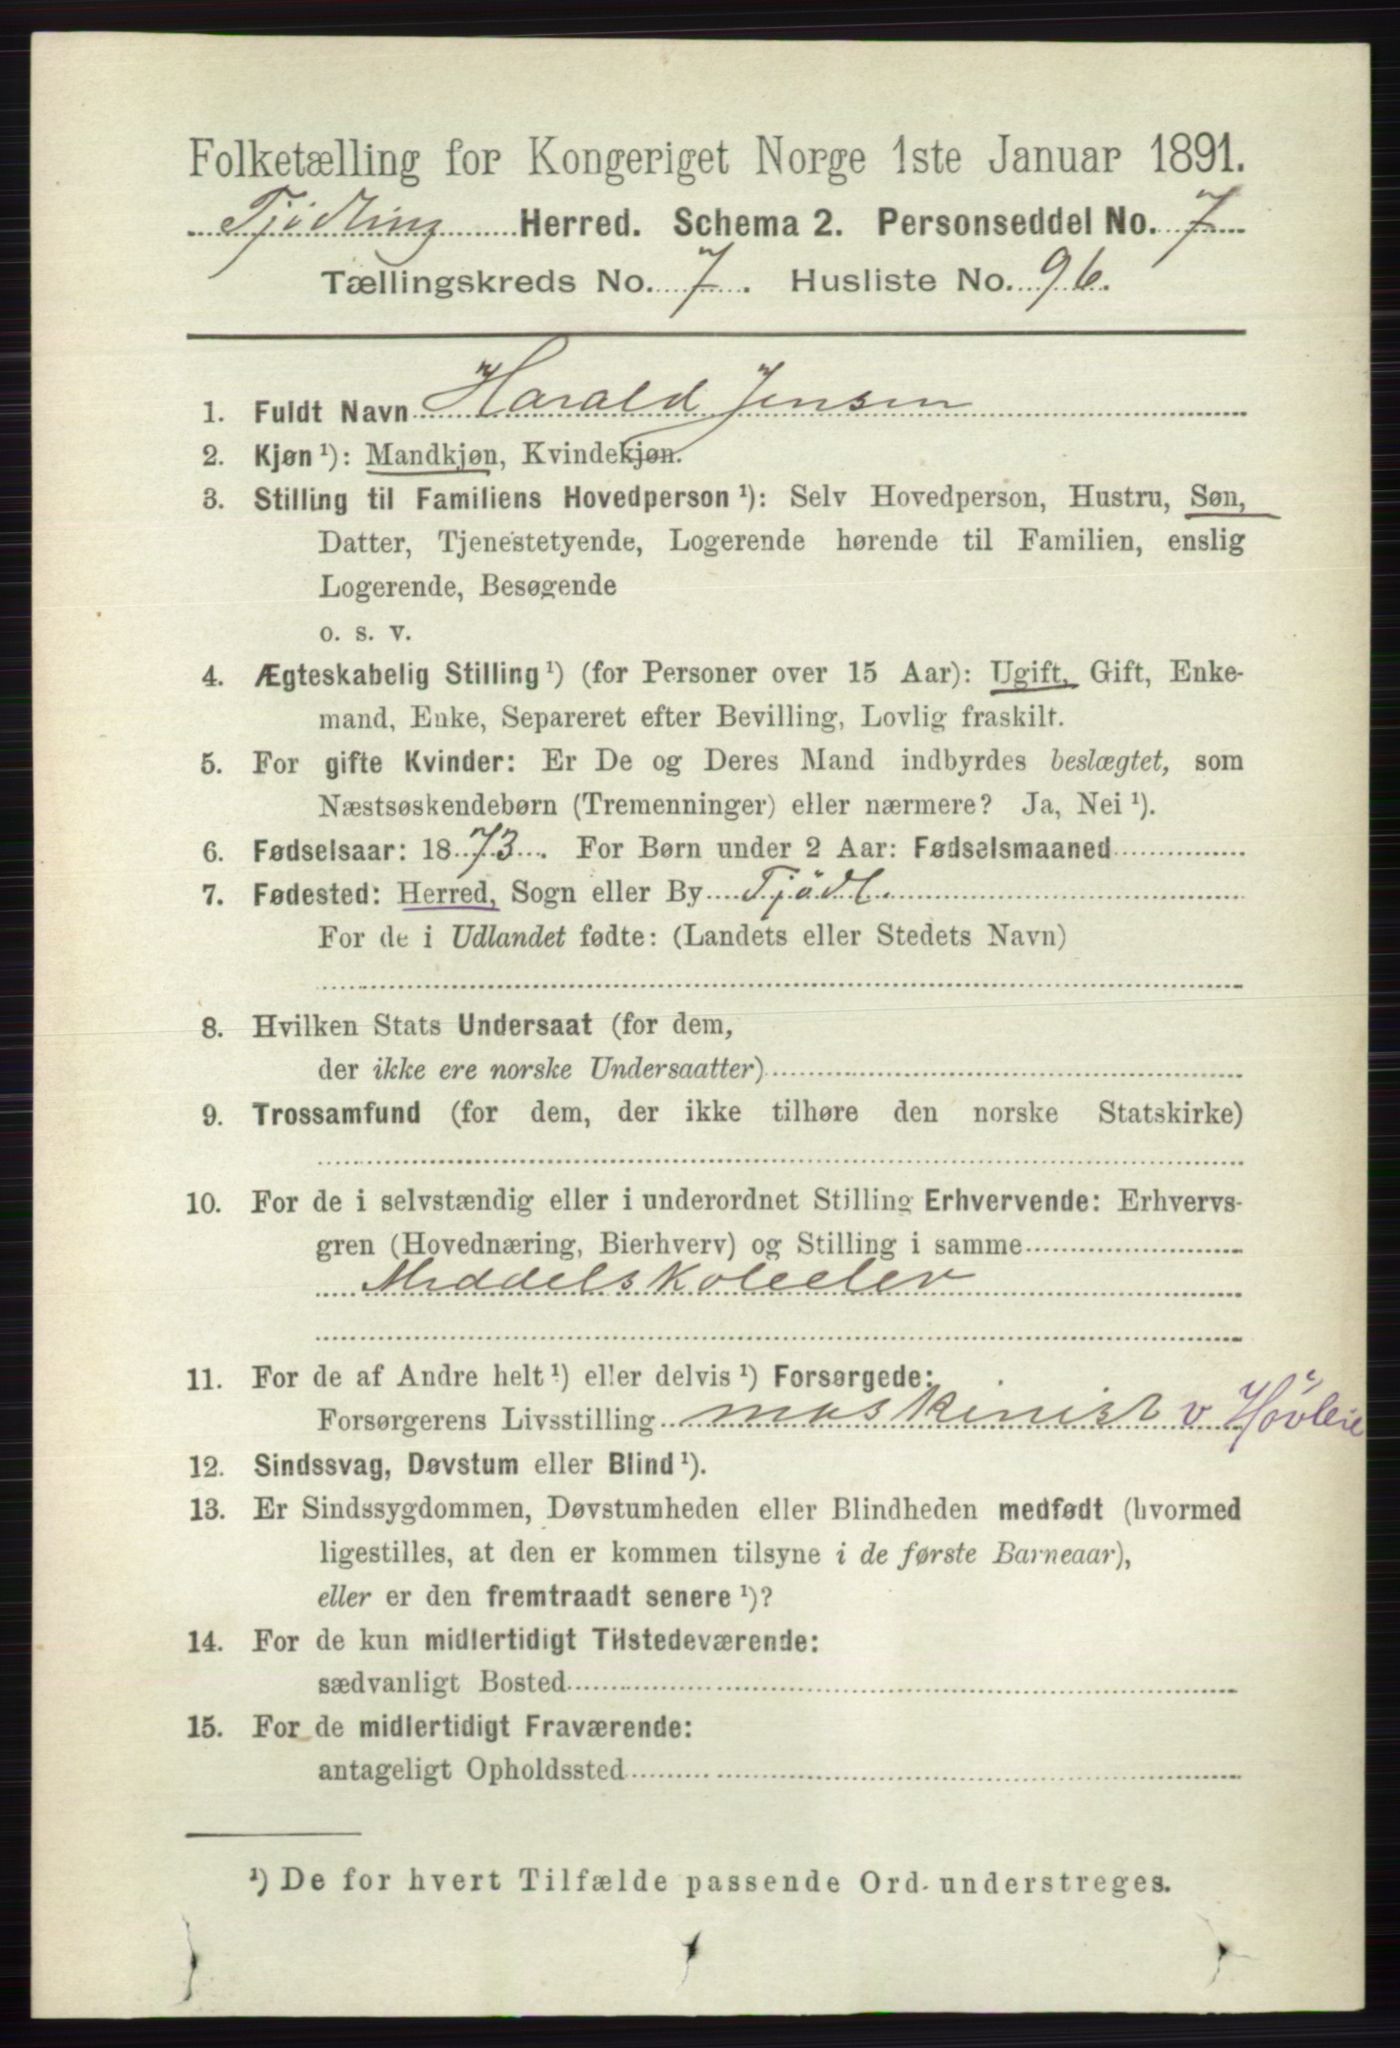 Folketælling for Kongeriget Norge 1ste Januar 1891.
Tjödling Herred. Schema 2. Personseddel No. 7
Tællingskreds No. 7. Husliste No. 96.
1. Fuldt Navn Harald Jensen
2. Kjøn ¹): Mandkjøn, Kvindekjøn.
3. Stilling til Familiens Hovedperson ¹): Selv Hovedperson, Hustru, Søn,
Datter, Tjenestetyende, Logerende hørende til Familien, enslig
Logerende, Besøgende
o. s. v.
4. Ægteskabelig Stilling ¹) (for Personer over 15 Aar): Ugift, Gift, Enke-
mand, Enke, Separeret efter Bevilling, Lovlig fraskilt.
5. For gifte Kvinder: Er De og Deres Mand indbyrdes beslægtet, som
Næstsøskendebørn (Tremenninger) eller nærmere? Ja, Nei ¹).
6. Fødselsaar: 1873. For Børn under 2 Aar: Fødselsmaaned
7. Fødested: Herred, Sogn eller By Tjödl.
For de i Udlandet fødte: (Landets eller Stedets Navn)
8. Hvilken Stats Undersaat (for dem,
der ikke ere norske Undersaatter)
9. Trossamfund (for dem, der ikke tilhøre den norske Statskirke)
10. For de i selvstændig eller i underordnet Stilling Erhvervende: Erhvervs-
gren (Hovednæring, Bierhverv) og Stilling i samme
Middelskoleelev
11. For de af Andre helt ¹) eller delvis ¹) Forsørgede:
Forsørgerens Livsstilling maskinist v Hövleie
12. Sindssvag, Døvstum eller Blind ¹).
13. Er Sindssygdommen, Døvstumheden eller Blindheden medfødt (hvormed
ligestilles, at den er kommen tilsyne i de første Barneaar),
eller er den fremtraadt senere ¹)?
14. For de kun midlertidigt Tilstedeværende:
sædvanligt Bosted
15. For de midlertidigt Fraværende:
antageligt Opholdssted
¹) De for hvert Tilfælde passende Ord understreges.